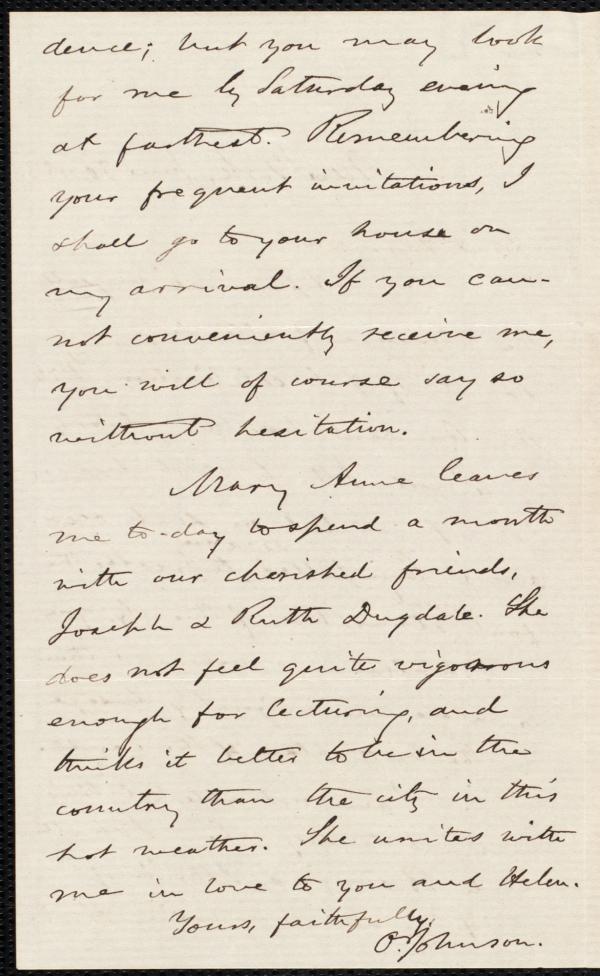 dence; but you may look
for me by Saturday evening
at farthest. Remembering
your frequent invitations, I
shall go to your house on
my arrival. If you can-
not conveniently receive me,
you will of course say so
without hesitation.
Mary Anne leaves
me to-day to spend a month
with our cherished friends,
Joseph & Ruth Dugdale. She
does not feel quite vigorous
enough for lecturing, and
thinks it better to be in the
country than the city in this
hot weather. She unites with
me in love to you and Helen.
Yours, faithfully,
O. Johnson.